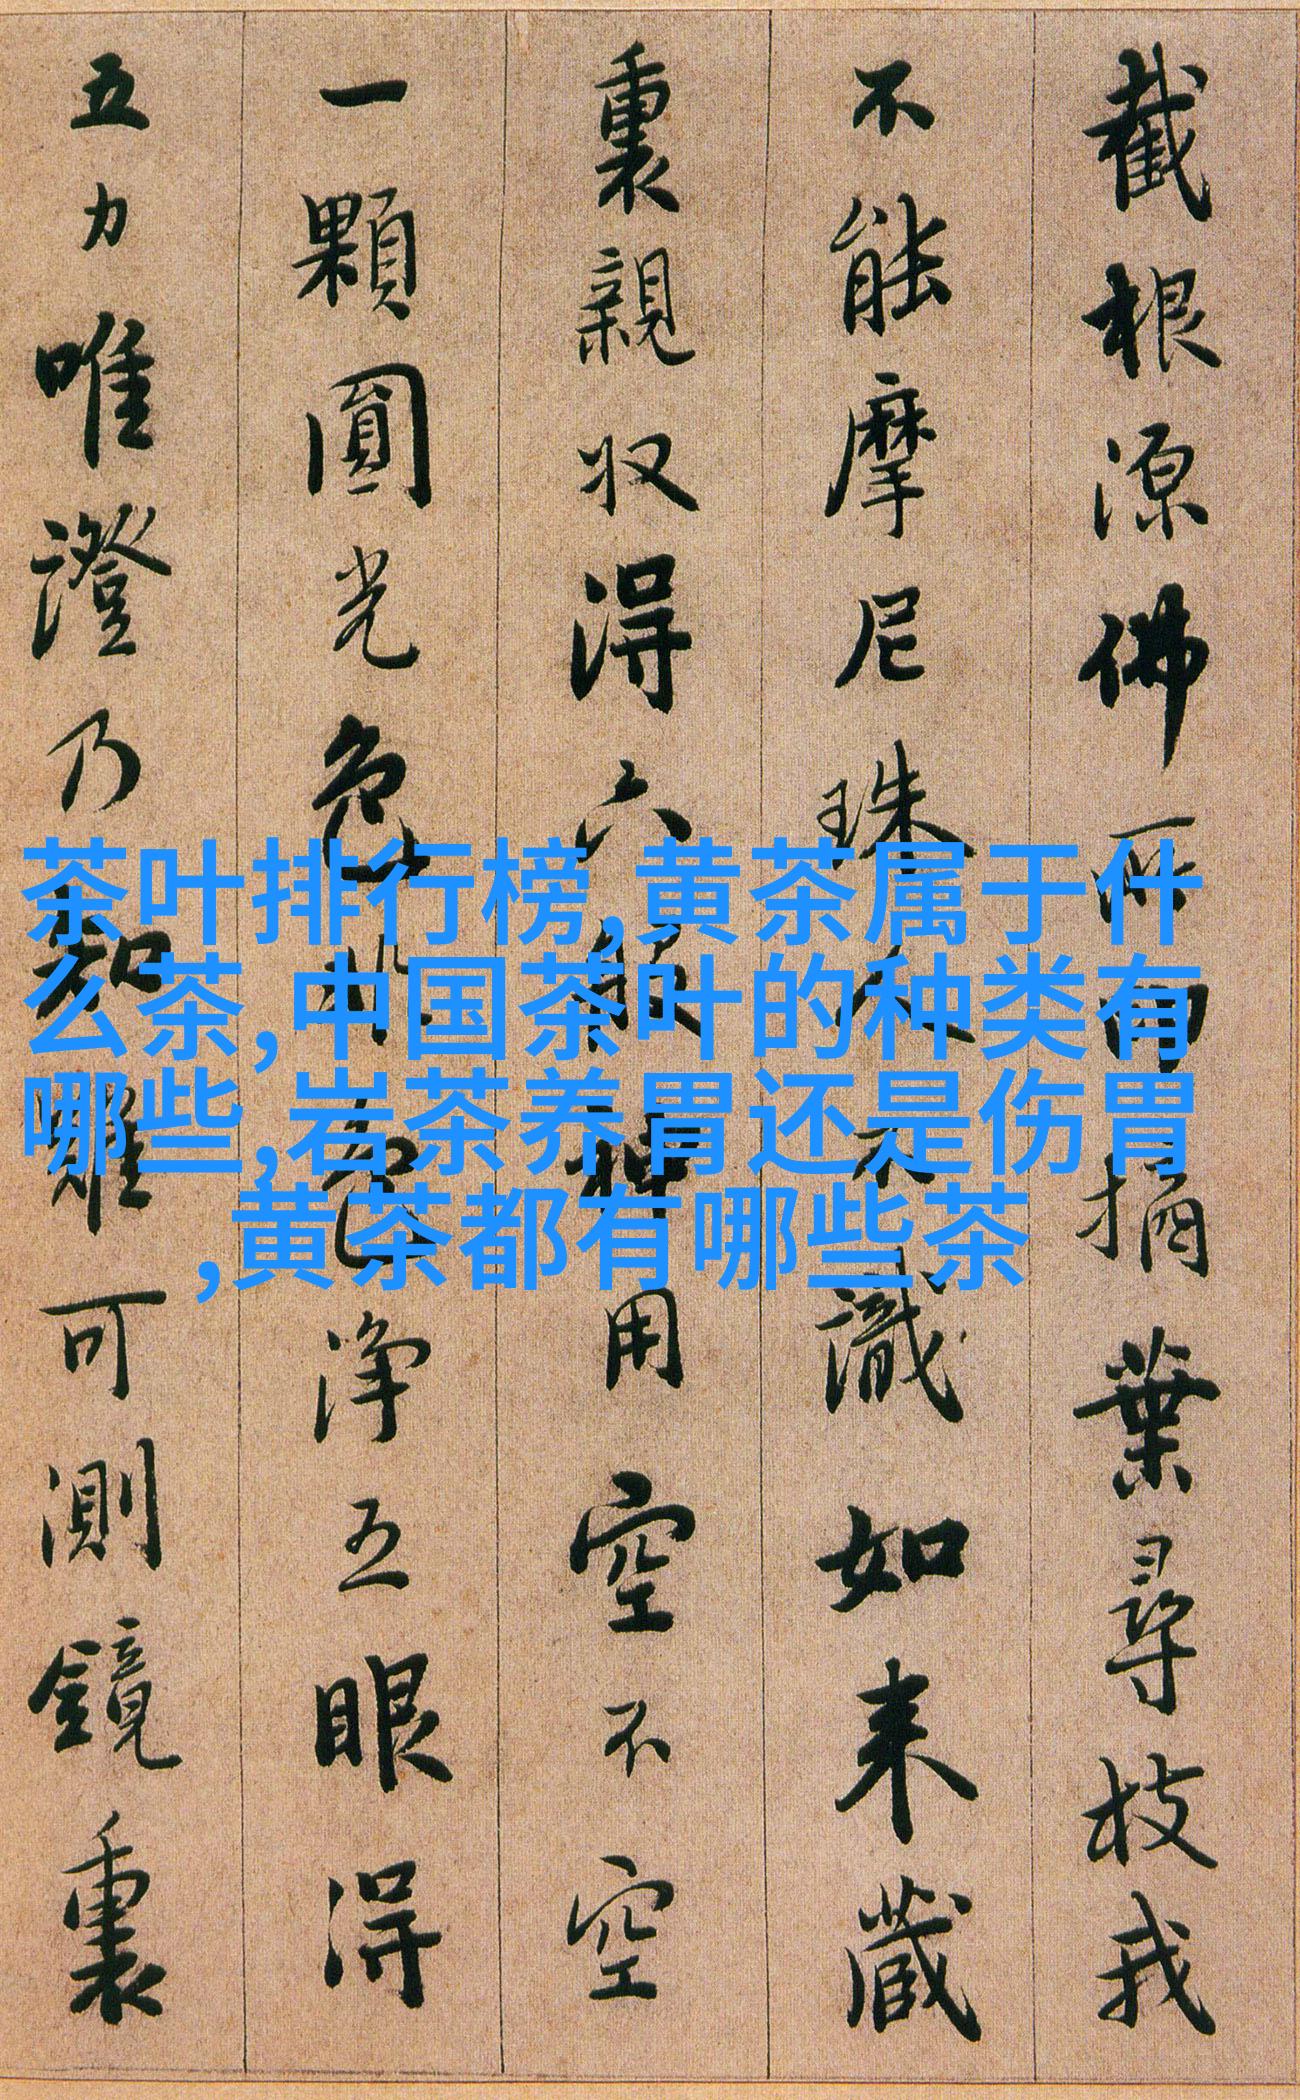 截根源佛所印摘葉尋枝我
不能摩尼珠人不識如来藏
裏親収得六般神用空不空
一顆圓光色非色淨五眼得
五力唯證乃知難可測鏡裏
茶叶排行榜,黄茶属于什
么茶,中国茶叶的种类有
哪些,岩茶养胃还是伤胃
,黄茶都有哪些茶